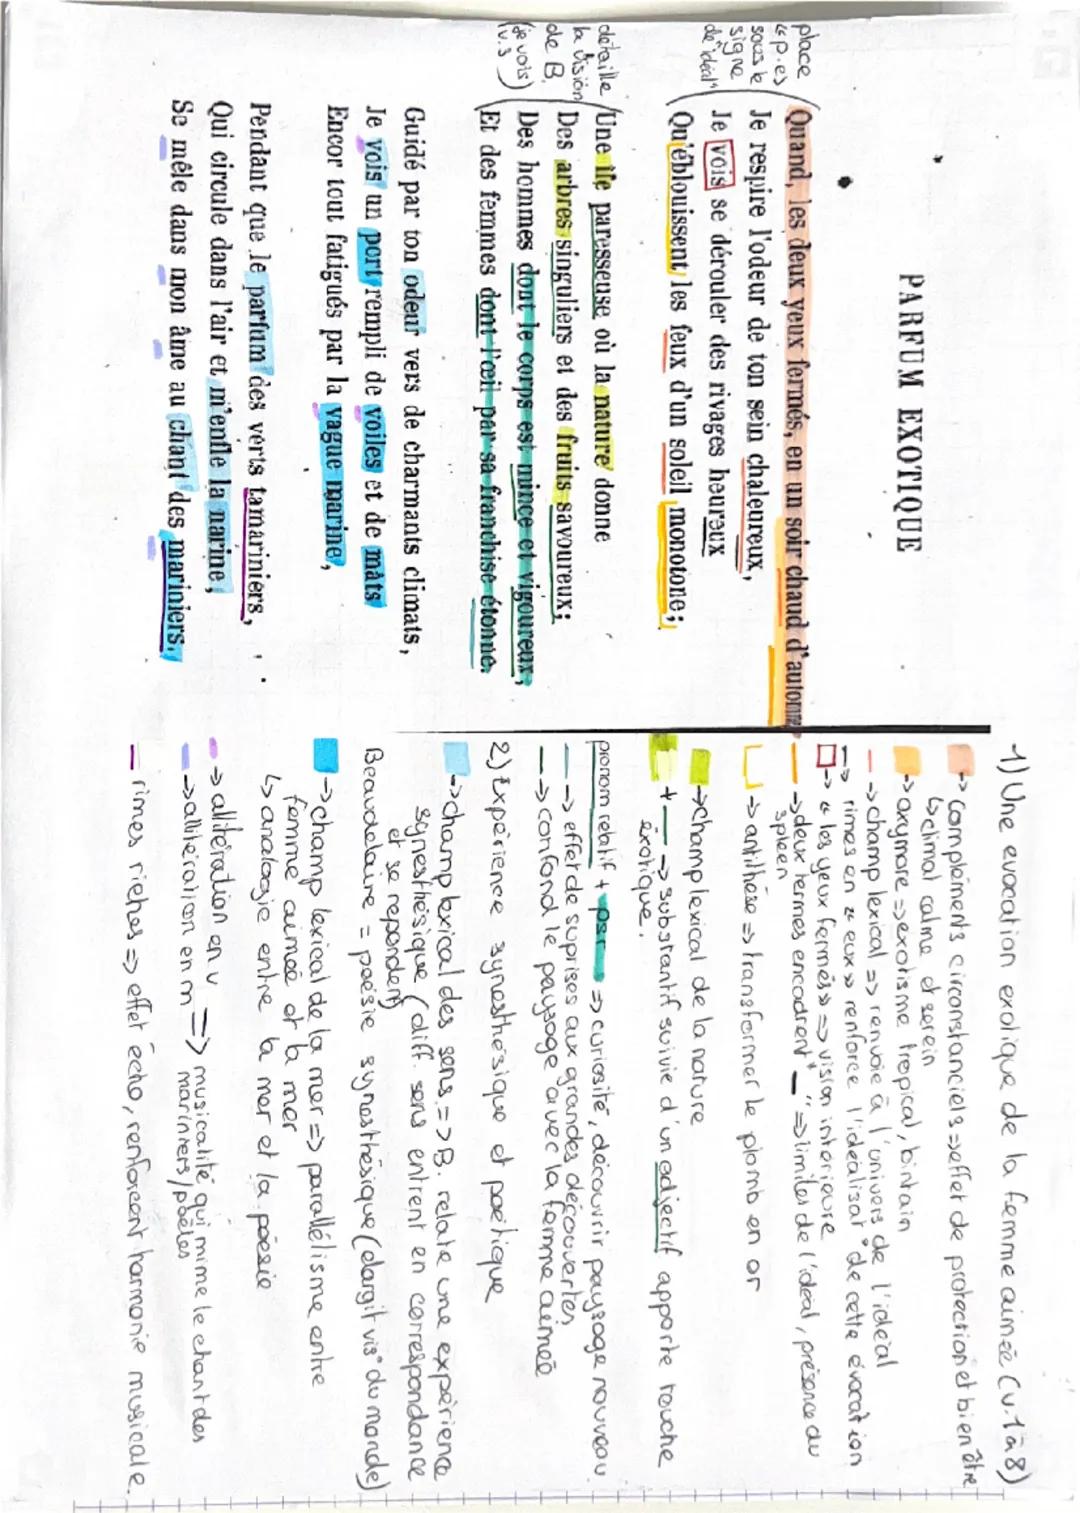 PARFUM EXOTIQUE
place
"p.es
sous le
signe
de idéal"
Quand, les deux yeux fermés, en un soir chaud d'automne,
Je respire l'odeur de ton sein chaleureux,
Je vois se dérouler des rivages heureux
Qu'éblouissent les feux d'un soleil monotone;
détaille
la vision
de B.
(je vois)
(v.3
Une île paresseuse où la nature donne
Des arbres singuliers et des fruits savoureux;
Des hommes dont le corps est mince et vigoureux,
Et des femmes dont l'œil par sa franchise étonne.
Guidé par ton odeur vers de charmants climats,
Je vois un port rempli de voiles et de mâts
Encor tout fatigués par la vague marine,
Pendant que le parfum des verts tamariniers,
Qui circule dans l'air et m'enfle la narine,
Se mêle dans mon âme au chant des mariniers.
1) Une evocation exotique de la femme aimée (v.1 à 8)
-> Compléments circonstanciels => effet de protection et bien être
↳ climat calme et serein
-> oxymore => exotisme tropical, lointain
-> champ lexical => renvoie à l'univers de l'idéal
-> rimes en "eux" renforce l'idéalisat° de cette évocation
-> "les yeux fermés" => vision intérieure
-> deux termes encadrent "_" => limites de l'idéal, présence du
spleen
-> antithèse => transformer le plomb en or
-> champ lexical de la nature
+ — -> substantif suivie d'un adjectif apporte touche
exotique.
pronom relatif + psr => curiosité, découvrir paysage nouveau
-> effet de suprises aux grandes découvertes
-> confond le paysage avec la femme aimée
2) Expérience synesthésique et poétique
-> champ lexical des sens => B. relate une expérience
synesthésique (diff. sens entrent en correspondance
et se repondent)
Beaudelaire = poésie synesthésique (élargit vis° du monde)
-> champ lexical de la mer => parallélisme entre
femme aimée et la mer
↳ analogie entre la mer et la poésie
-> allitération en v
-> allitération en m => musicalité qui mime le chant des
mariniers/poètes
rimes riches => effet écho, renforcent harmonie musicale.